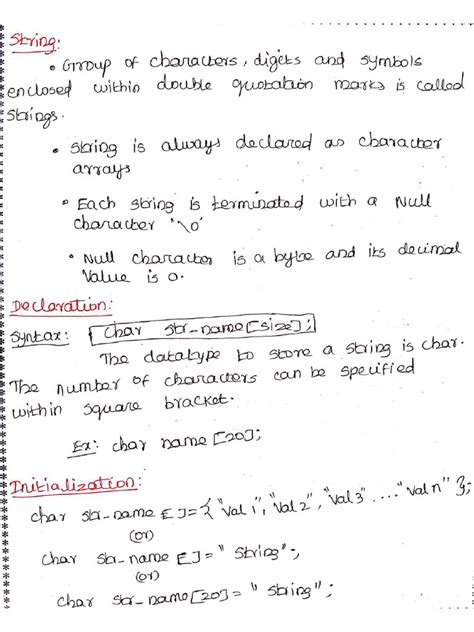 String:
• Group of characters, digits and symbols
enclosed within double quotation marks is called
Strings.
• String is always declared as character
arrays
• Each string is terminated with a Null
character '\0'
• Null character is a byte and its decimal
Value is 0.
Declaration:
Syntax: char str_name[size];
The datatype to store a string is char.
The number of characters can be specified
within square bracket.
Ex: char name[20];
Initialization:
char str_name[]={"val1","val2","val3"...."valn"};
(or)
char str_name[]="String";
(or)
char str_name[20]="String";